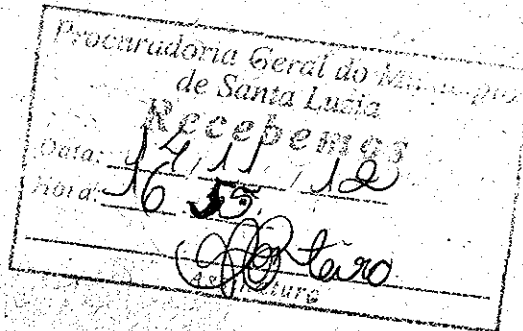 Procuradoria Geral do
de Santa Luzia
Recebemos
Data: 14 / 11 / 12
Hora: 16
Assinatura